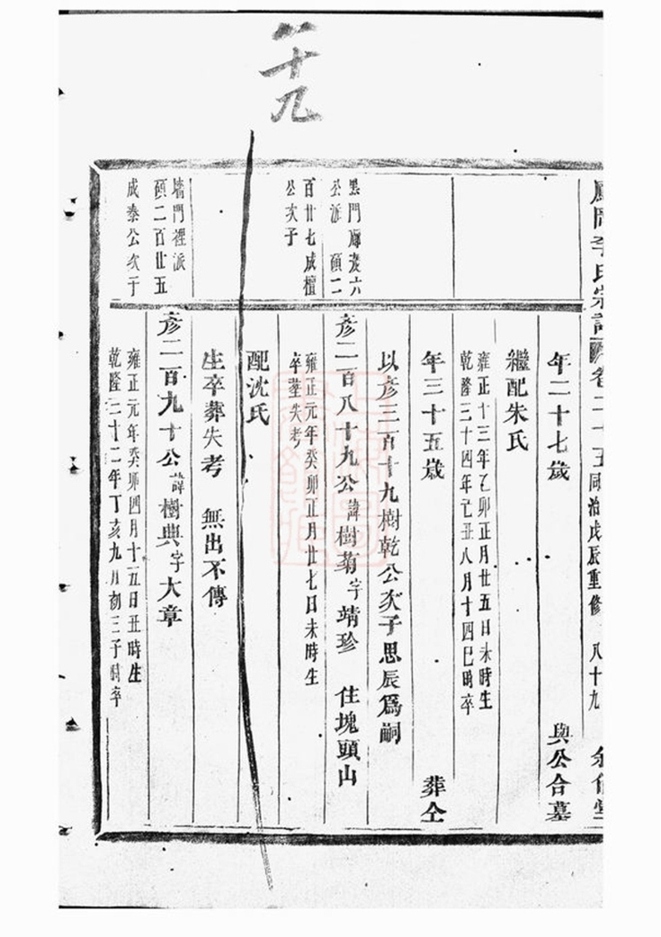 二十九
李氏宗譜 卷二十五 同治戊辰重修 八十九
年二十七歲 與公合墓
繼配朱氏
雍正十三年乙卯正月廿五日未時生
乾隆三十四年己丑八月十四巳時卒
年三十五歲 葬仝
以彥三百十九樹乾公次子思辰為嗣
六
公派 碩二
百廿七成檀
公次子
彥二百八十九公諱樹菊字靖珍 住塊頭山
雍正元年癸卯正月廿七日未時生
卒塟失考
配沈氏
生卒葬失考 無出不傳
墻門裡派
碩二百廿五
成泰公次子
彥二百九十公諱樹典字大章
雍正元年癸卯四月十五日丑時生
乾隆三十二年丁亥九月初三子時卒